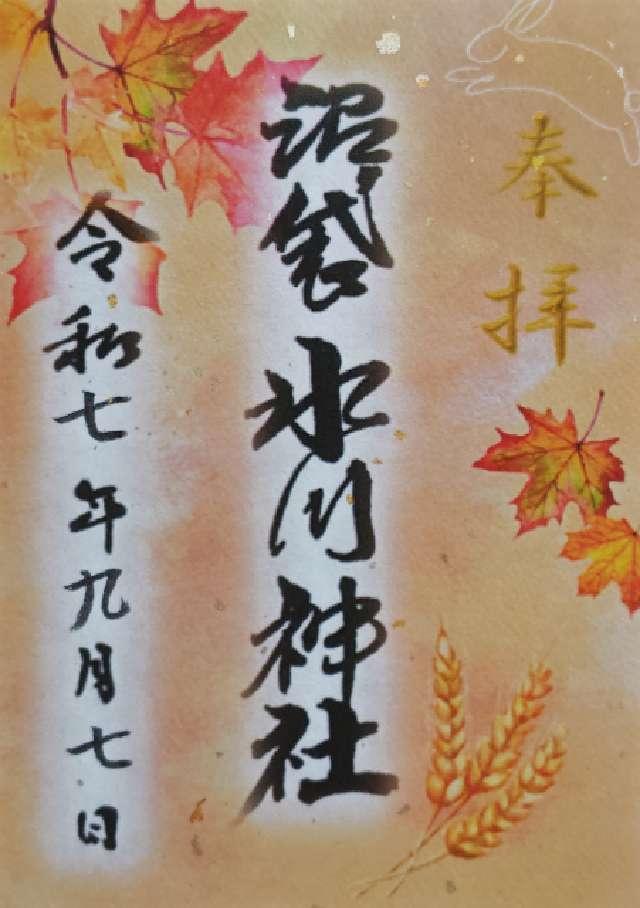 奉拝
沼袋氷川神社
令和七年九月七日